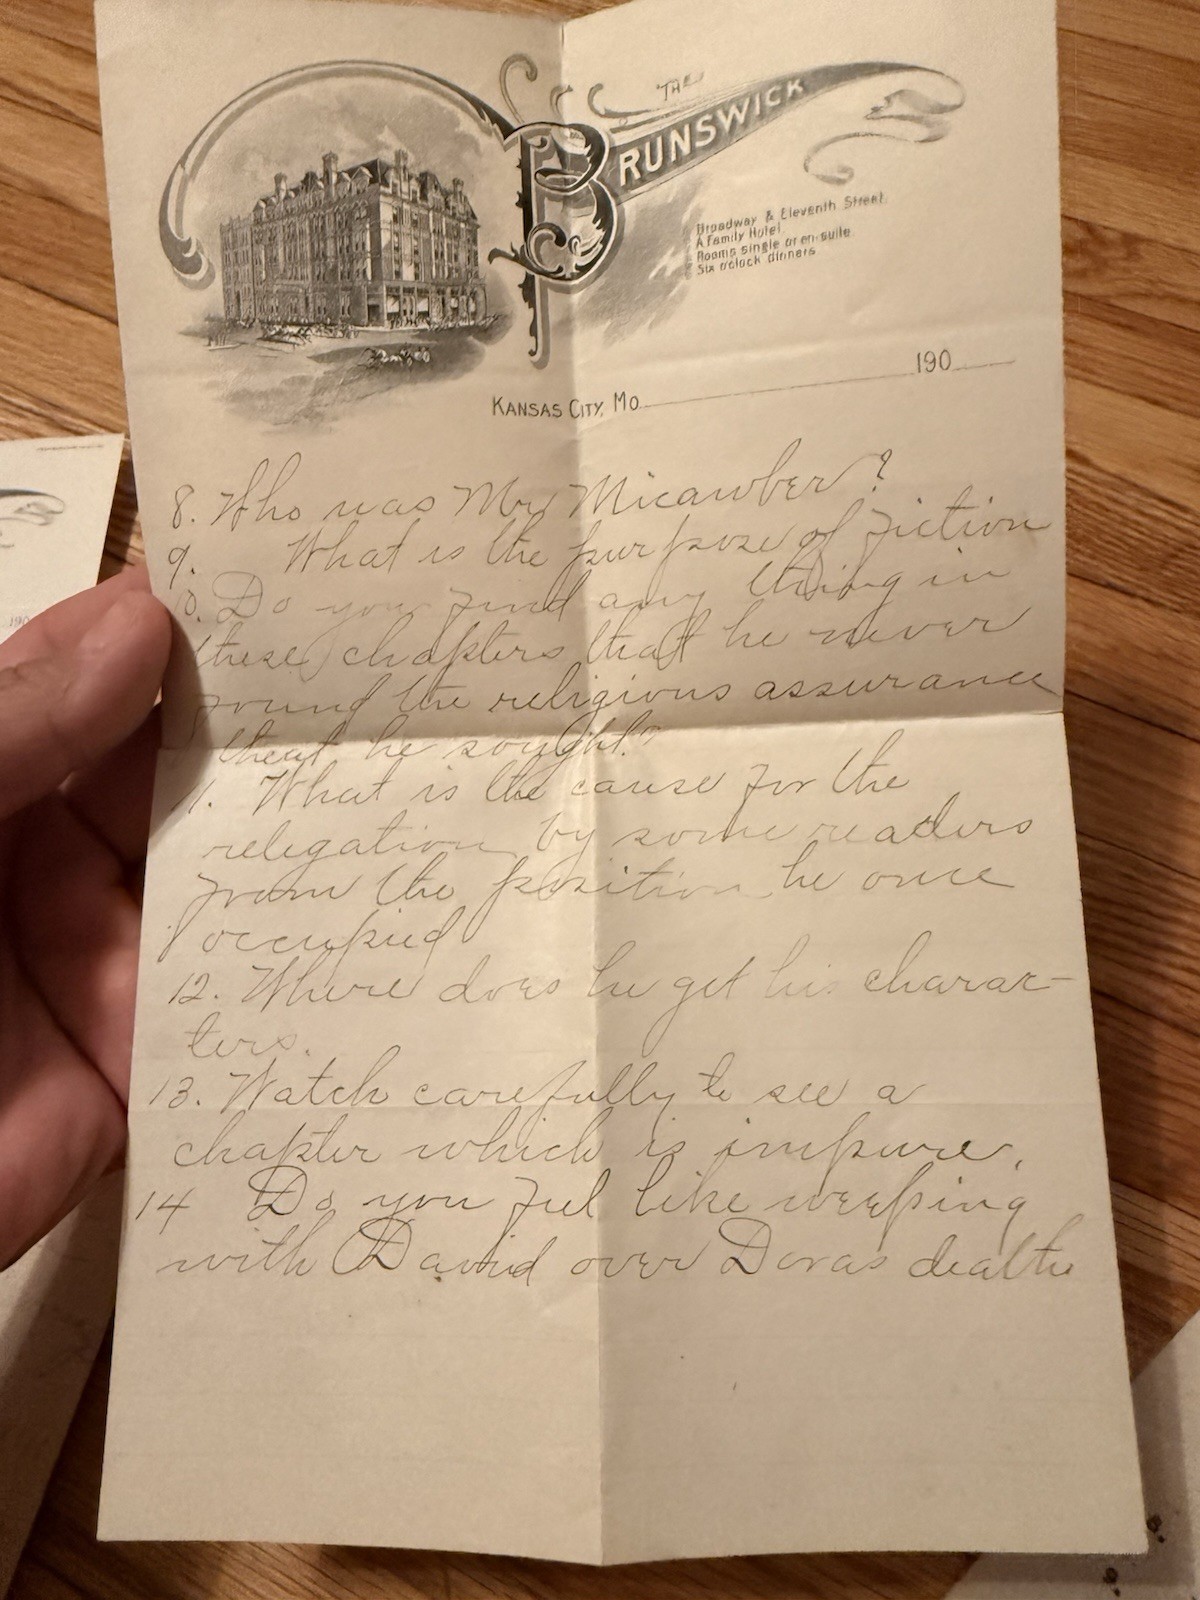 THE
BRUNSWICK
Broadway & Eleventh Street.
A Family Hotel.
Rooms single or en-suite.
Six o'clock dinners
190
KANSAS CITY, MO.
8. Who was Mr Micawber?
9. What is the purpose of fiction
10. Do you find any thing in
these chapters that he never
found the religious assurance
that he sought."
11. What is the cause for the
relegation by some readers
from the position he once
occupied
12. Where does he get his charac-
ters.
13. Watch carefully to see a
chapter which is impure.
14 Do you feel like weeping
with David over Doras death
190